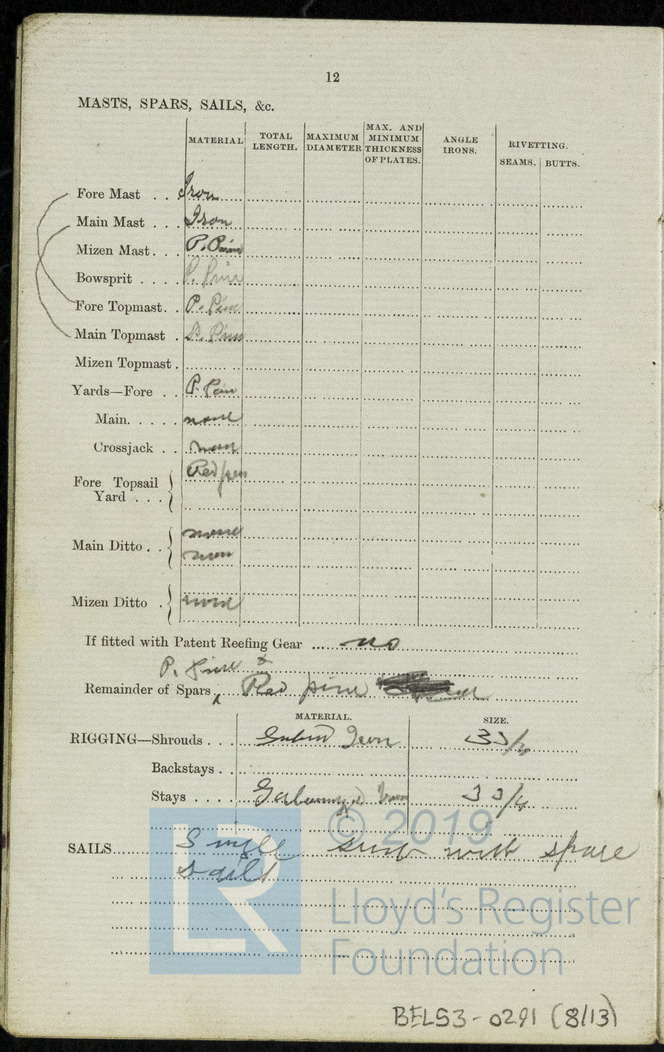 12
MASTS, SPARS, SAILS, &c.
MATERIAL TOTAL LENGTH. MAXIMUM DIAMETER MAX. AND MINIMUM THICKNESS OF PLATES. ANGLE IRONS. RIVETTING. SEAMS. BUTTS.
Fore Mast . . Iron
Main Mast . . . Iron
Mizen Mast. . . P. Pine
Bowsprit . . . . P. Pine
Fore Topmast. . P. Pine
Main Topmast . P. Pine
Mizen Topmast .
Yards—Fore . . P. Pine
Main. . . . . none
Crossjack . . none
Fore Topsail Yard . . . Red pine
Main Ditto . . none
none
Mizen Ditto . none
If fitted with Patent Reefing Gear ... no
P. Pine &
Remainder of Spars Red pine
MATERIAL. SIZE.
RIGGING—Shrouds . . . Iron 3 3/4
Backstays . .
Stays . . . . Iron 3 3/4
SAILS Single suit with spare
sails
© 2019
LR
Lloyd's Register
Foundation
BELS3-0291 (8/13)